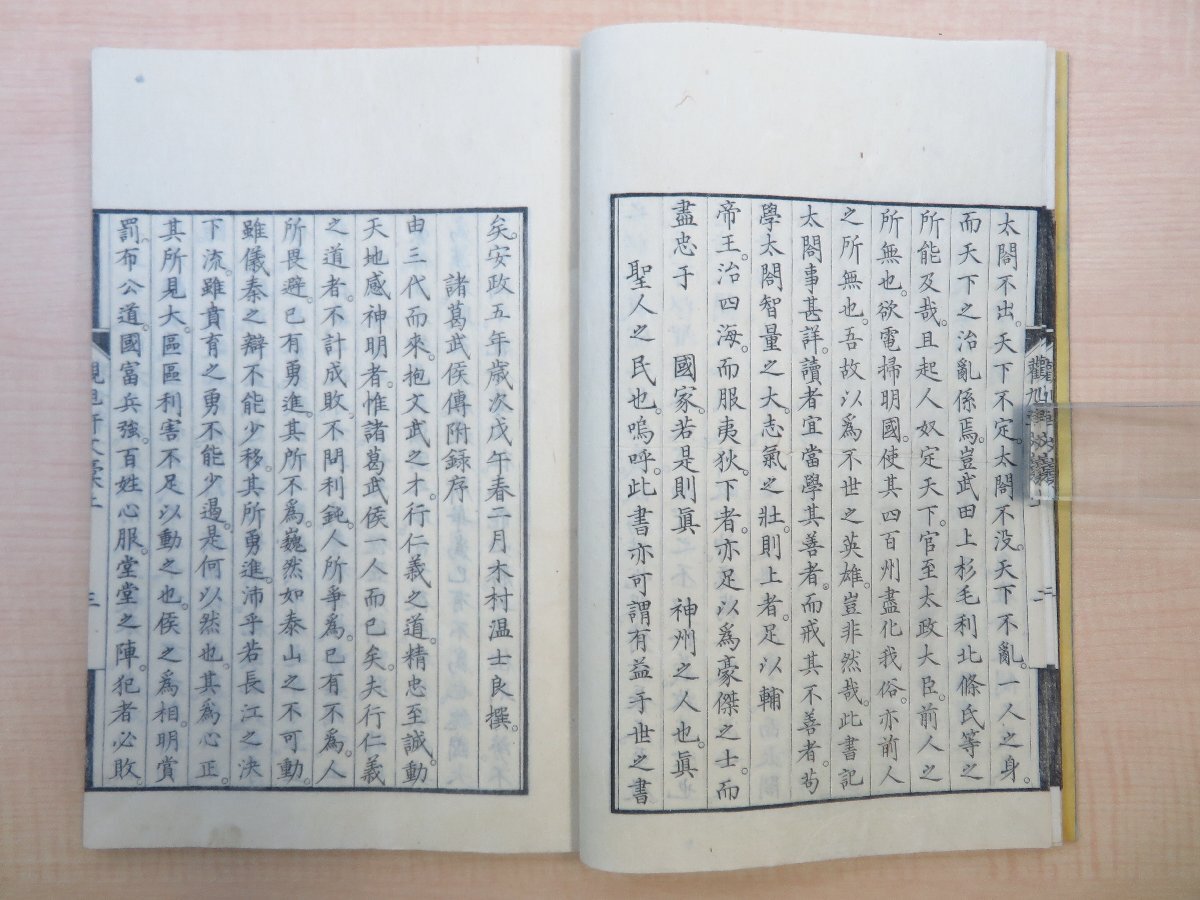 太閤不出。天下不定。太閤不没。天下不亂。一人之身。
而天下之治亂係焉。豈武田上杉毛利北條氏等之
所能及哉。且起人奴定天下。官至太政大臣。前人之
所無也。欲電掃明國。使其四百州盡化我俗。亦前人
之所無也。吾故以為不世之英雄。豈非然哉。此書記
太閤事甚詳。讀者宜當學其善者。而戒其不善者。苟
學太閤智量之大。志氣之壯。則上者。足以輔
帝王。治四海。而服夷狄。下者。亦足以為豪傑之士。而
盡忠于 國家。若是則眞 神州之人也。眞
聖人之民也。嗚呼。此書亦可謂有益乎世之書
矣。安政五年歳次戊午春二月木村温士良撰。
諸葛武侯傳附録序
由三代而來。抱文武之才。行仁義之道。精忠至誠。動
天地感神明者。惟諸葛武侯一人而已矣。夫行仁義
之道者。不計成敗。不問利鈍。人所爭為。已有不為。人
所畏避。已有勇進。其所不為。巍然如泰山之不可動。
雖儀秦之辯不能少移。其所勇進。沛乎若長江之决
下流。雖賁育之勇不能少遏。是何以然也。其為心正。
其所見大。區區利害不足以動之也。侯之為相。明賞
罰。布公道。國富兵強。百姓心服。堂堂之陣。犯者必敗
二
三